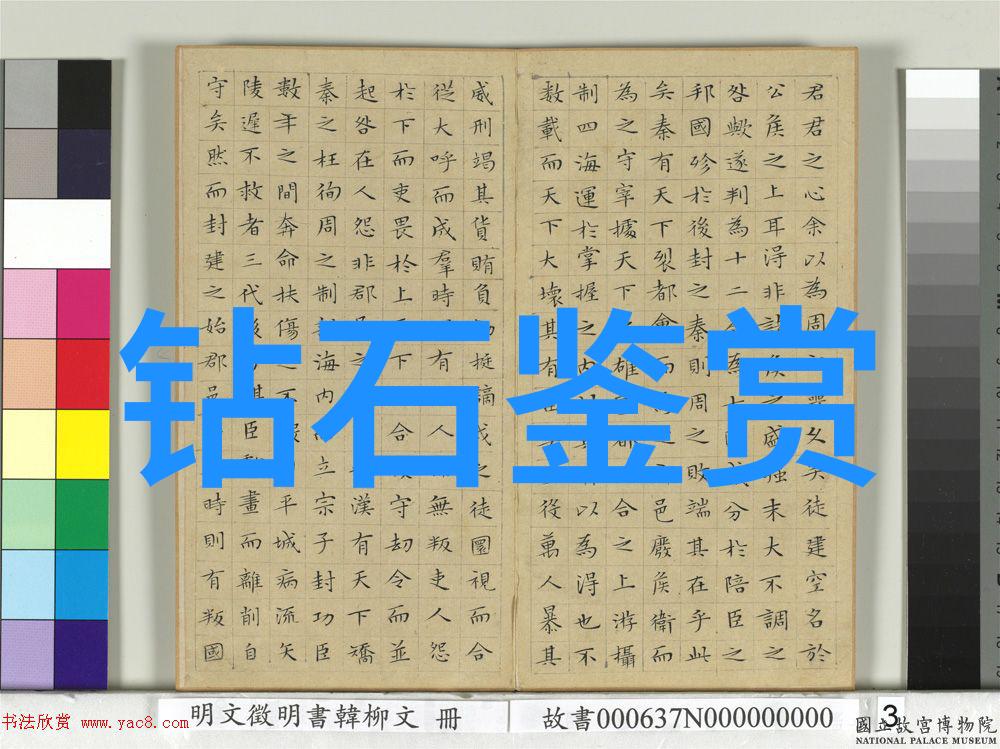 君君之心余以為周久矣徒建空名於
公侯之上耳得非諸侯之盛强末大不調之
咎歟遂判為十二為七分於陪臣之
邦國殄於後封之秦則周之敗端其在乎此
矣秦有天下裂都會而邑廢侯衛而
為之守宰據天下雄都合之上游攝
制四海運於掌握之内以為得也不
數載而天下大壞其有役萬人暴其
威刑竭其貨賄負梃謫戍之徒圜視而合
從大呼而成羣時有人無叛吏人怨
於下而吏畏於上下合守劫令而並
起咎在人怨非郡之漢有天下矯
秦之枉徇周之制海内立宗子封功臣
數年之間奔命扶傷之不平城病流矢
陵遲不救者三代後臣畫而離削自
守矣然而封建之始郡邑時則有叛國
钻石鉴赏
书法欣赏 www.yac8.com
明文徵明書韓柳文 冊
故書000637N000000000
3
國立故宮博物院
NATIONAL PALACE MUSEUM